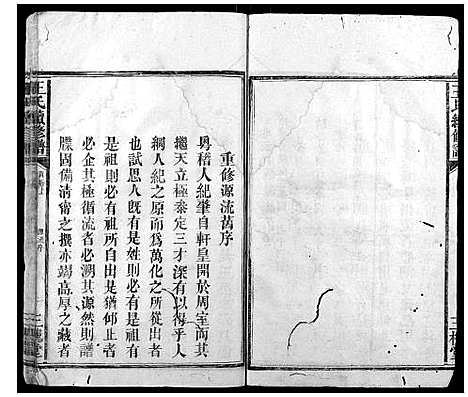 重修源流舊序
粤稽人紀肇自軒皇開於周室而其
繼天立極泰定三才深有以得乎人
綱人紀之原而為萬化之所從出者
也試思人既有是姓則必有是祖有
是祖則必有祖所自出是猶仰止者
必企其極循流者必溯其源然則譜
牒固備清甯之撰亦竭高厚之藏者
王氏續修譜
王氏續修譜
三槐堂
三槐堂